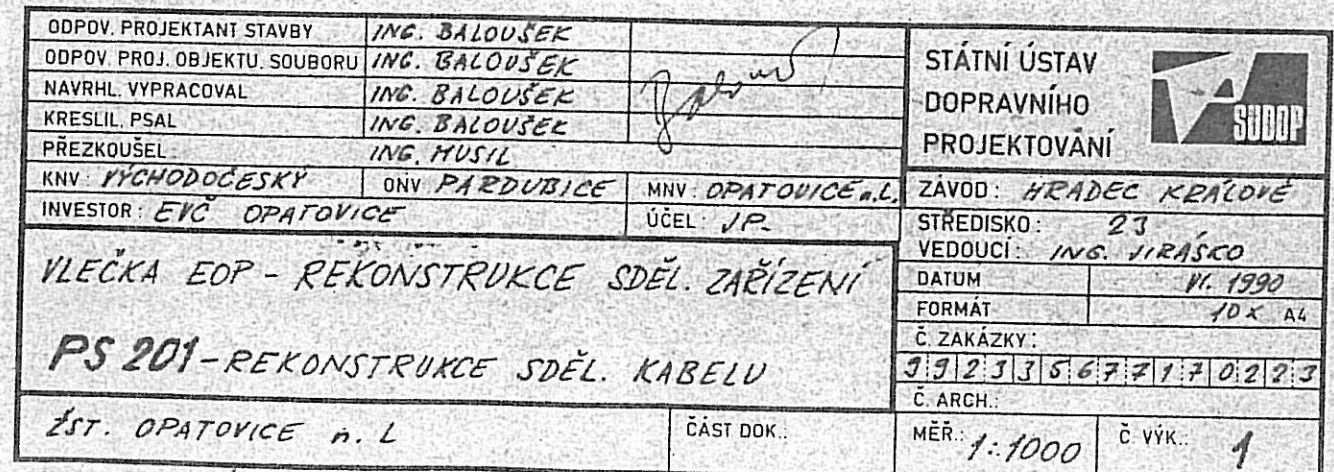 ODPOV. PROJEKTANT STAVBY ING. BALOUŠEK
ODPOV. PROJ. OBJEKTU. SOUBORU ING. BALOUŠEK
NAVRHL. VYPRACOVAL ING. BALOUŠEK
KRESLIL. PSAL ING. BALOUŠEK
PŘEZKOUŠEL: ING. MUSIL
KNV: VÝCHODOČESKÝ ONV PARDUBICE MNV: OPATOVICE n.L.
INVESTOR: EVČ OPATOVICE ÚČEL: JP.
VLEČKA EOP - REKONSTRUKCE SDĚL. ZAŘÍZENÍ
PS 201 - REKONSTRUKCE SDĚL. KABELU
ŽST. OPATOVICE n. L ČÁST DOK.:
STÁTNÍ ÚSTAV
DOPRAVNÍHO
PROJEKTOVÁNÍ
SUDOP
ZÁVOD: HRADEC KRÁLOVÉ
STŘEDISKO: 23
VEDOUCÍ: ING. JIRÁSKO
DATUM VI. 1990
FORMÁT 10x A4
Č. ZAKÁZKY:
Č. ARCH.:
MĚŘ.: 1:1000 Č VÝK.: 1